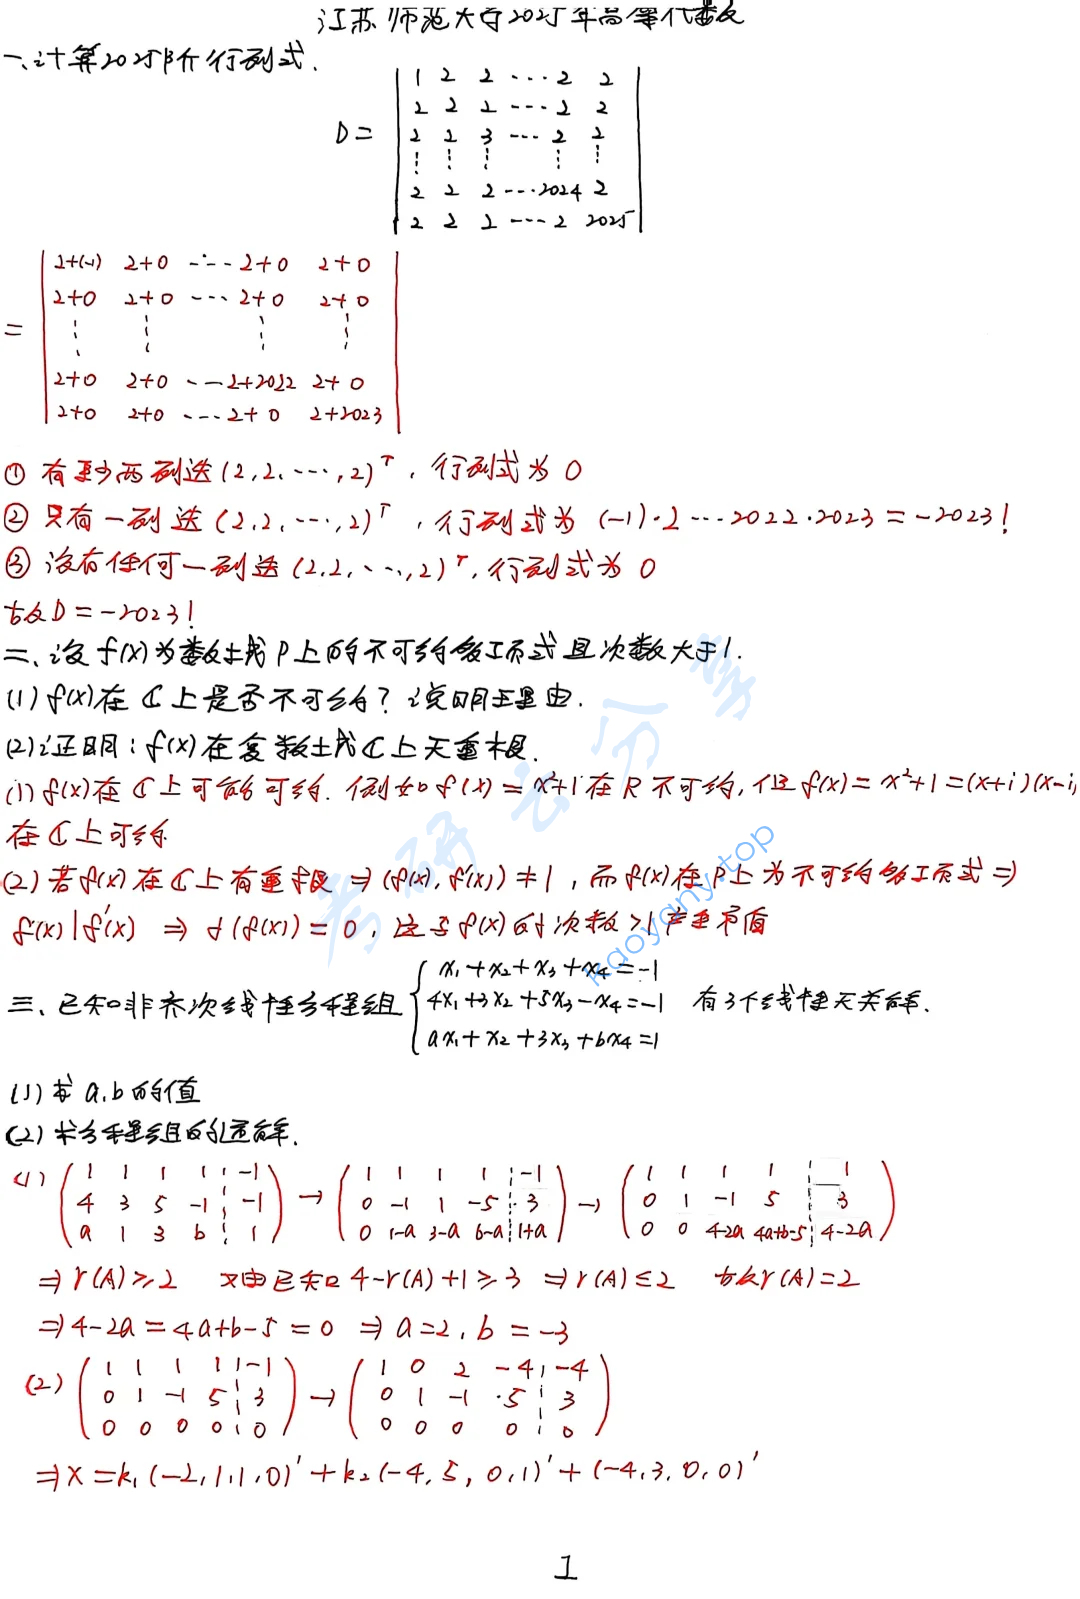 江苏师范大学2025年高等代数
一、计算2025阶行列式.
D = | 1 2 2 ··· 2 2 |
| 2 2 2 ··· 2 2 |
| 2 2 3 ··· 2 2 |
| ⋮ ⋮ ⋮ ⋮ ⋮ |
| 2 2 2 ··· 2024 2 |
| 2 2 2 ··· 2 2025 |
= | 2+(-1) 2+0 ··· 2+0 2+0 |
| 2+0 2+0 ··· 2+0 2+0 |
| ⋮ ⋮ ⋮ ⋮ |
| 2+0 2+0 ··· 2+2022 2+0 |
| 2+0 2+0 ··· 2+0 2+2023 |
① 有至少两列选(2,2,···,2)ᵀ, 行列式为 0
② 只有一列选(2,2,···,2)ᵀ, 行列式为 (-1)·2···2022·2023=-2023!
③ 没有任何一列选(2,2,···,2)ᵀ, 行列式为 0
故D=-2023!
二、设f(x)为数域P上的不可约多项式且次数大于1.
(1) f(x)在ℂ上是否不可约? 说明理由.
(2)证明: f(x)在复数域ℂ上无重根.
(1) f(x)在ℂ上可能可约. 例如f(x)=x²+1在R不可约, 但f(x)=x²+1=(x+i)(x-i)
在ℂ上可约
(2) 若f(x)在ℂ上有重根⇒(f(x), f'(x))≠1, 而f(x)在P上为不可约多项式⇒
f(x)|f'(x) ⇒ ∂(f(x))=0, 这与f(x)的次数>1产生矛盾
三、已知非齐次线性方程组 { x₁+x₂+x₃+x₄=-1
4x₁+3x₂+5x₃-x₄=-1 有3个线性无关解.
ax₁+x₂+3x₃+bx₄=1
(1) 求a,b的值
(2) 求方程组的通解.
(1) ( 1 1 1 1 ¦ -1 ) → ( 1 1 1 1 ¦ -1 ) → ( 1 1 1 1 ¦ 1 )
( 4 3 5 -1 ¦ -1 ) ( 0 -1 1 -5 ¦ 3 ) ( 0 1 -1 5 ¦ 3 )
( a 1 3 b ¦ 1 ) ( 0 1-a 3-a b-a ¦ 1+a ) ( 0 0 4-2a 4a+b-5 ¦ 4-2a )
⇒ r(A)≥2 又由已知 4-r(A)+1≥3 ⇒ r(A)≤2 故r(A)=2
⇒ 4-2a=4a+b-5=0 ⇒ a=2, b=-3
(2) ( 1 1 1 1 ¦ -1 ) → ( 1 0 2 -4 ¦ -4 )
( 0 1 -1 5 ¦ 3 ) ( 0 1 -1 5 ¦ 3 )
( 0 0 0 0 ¦ 0 ) ( 0 0 0 0 ¦ 0 )
⇒ X=k₁(-2,1,1,0)'+k₂(-4,5,0,1)'+(-4,3,0,0)'
考研云分享
kaoyany.top
1